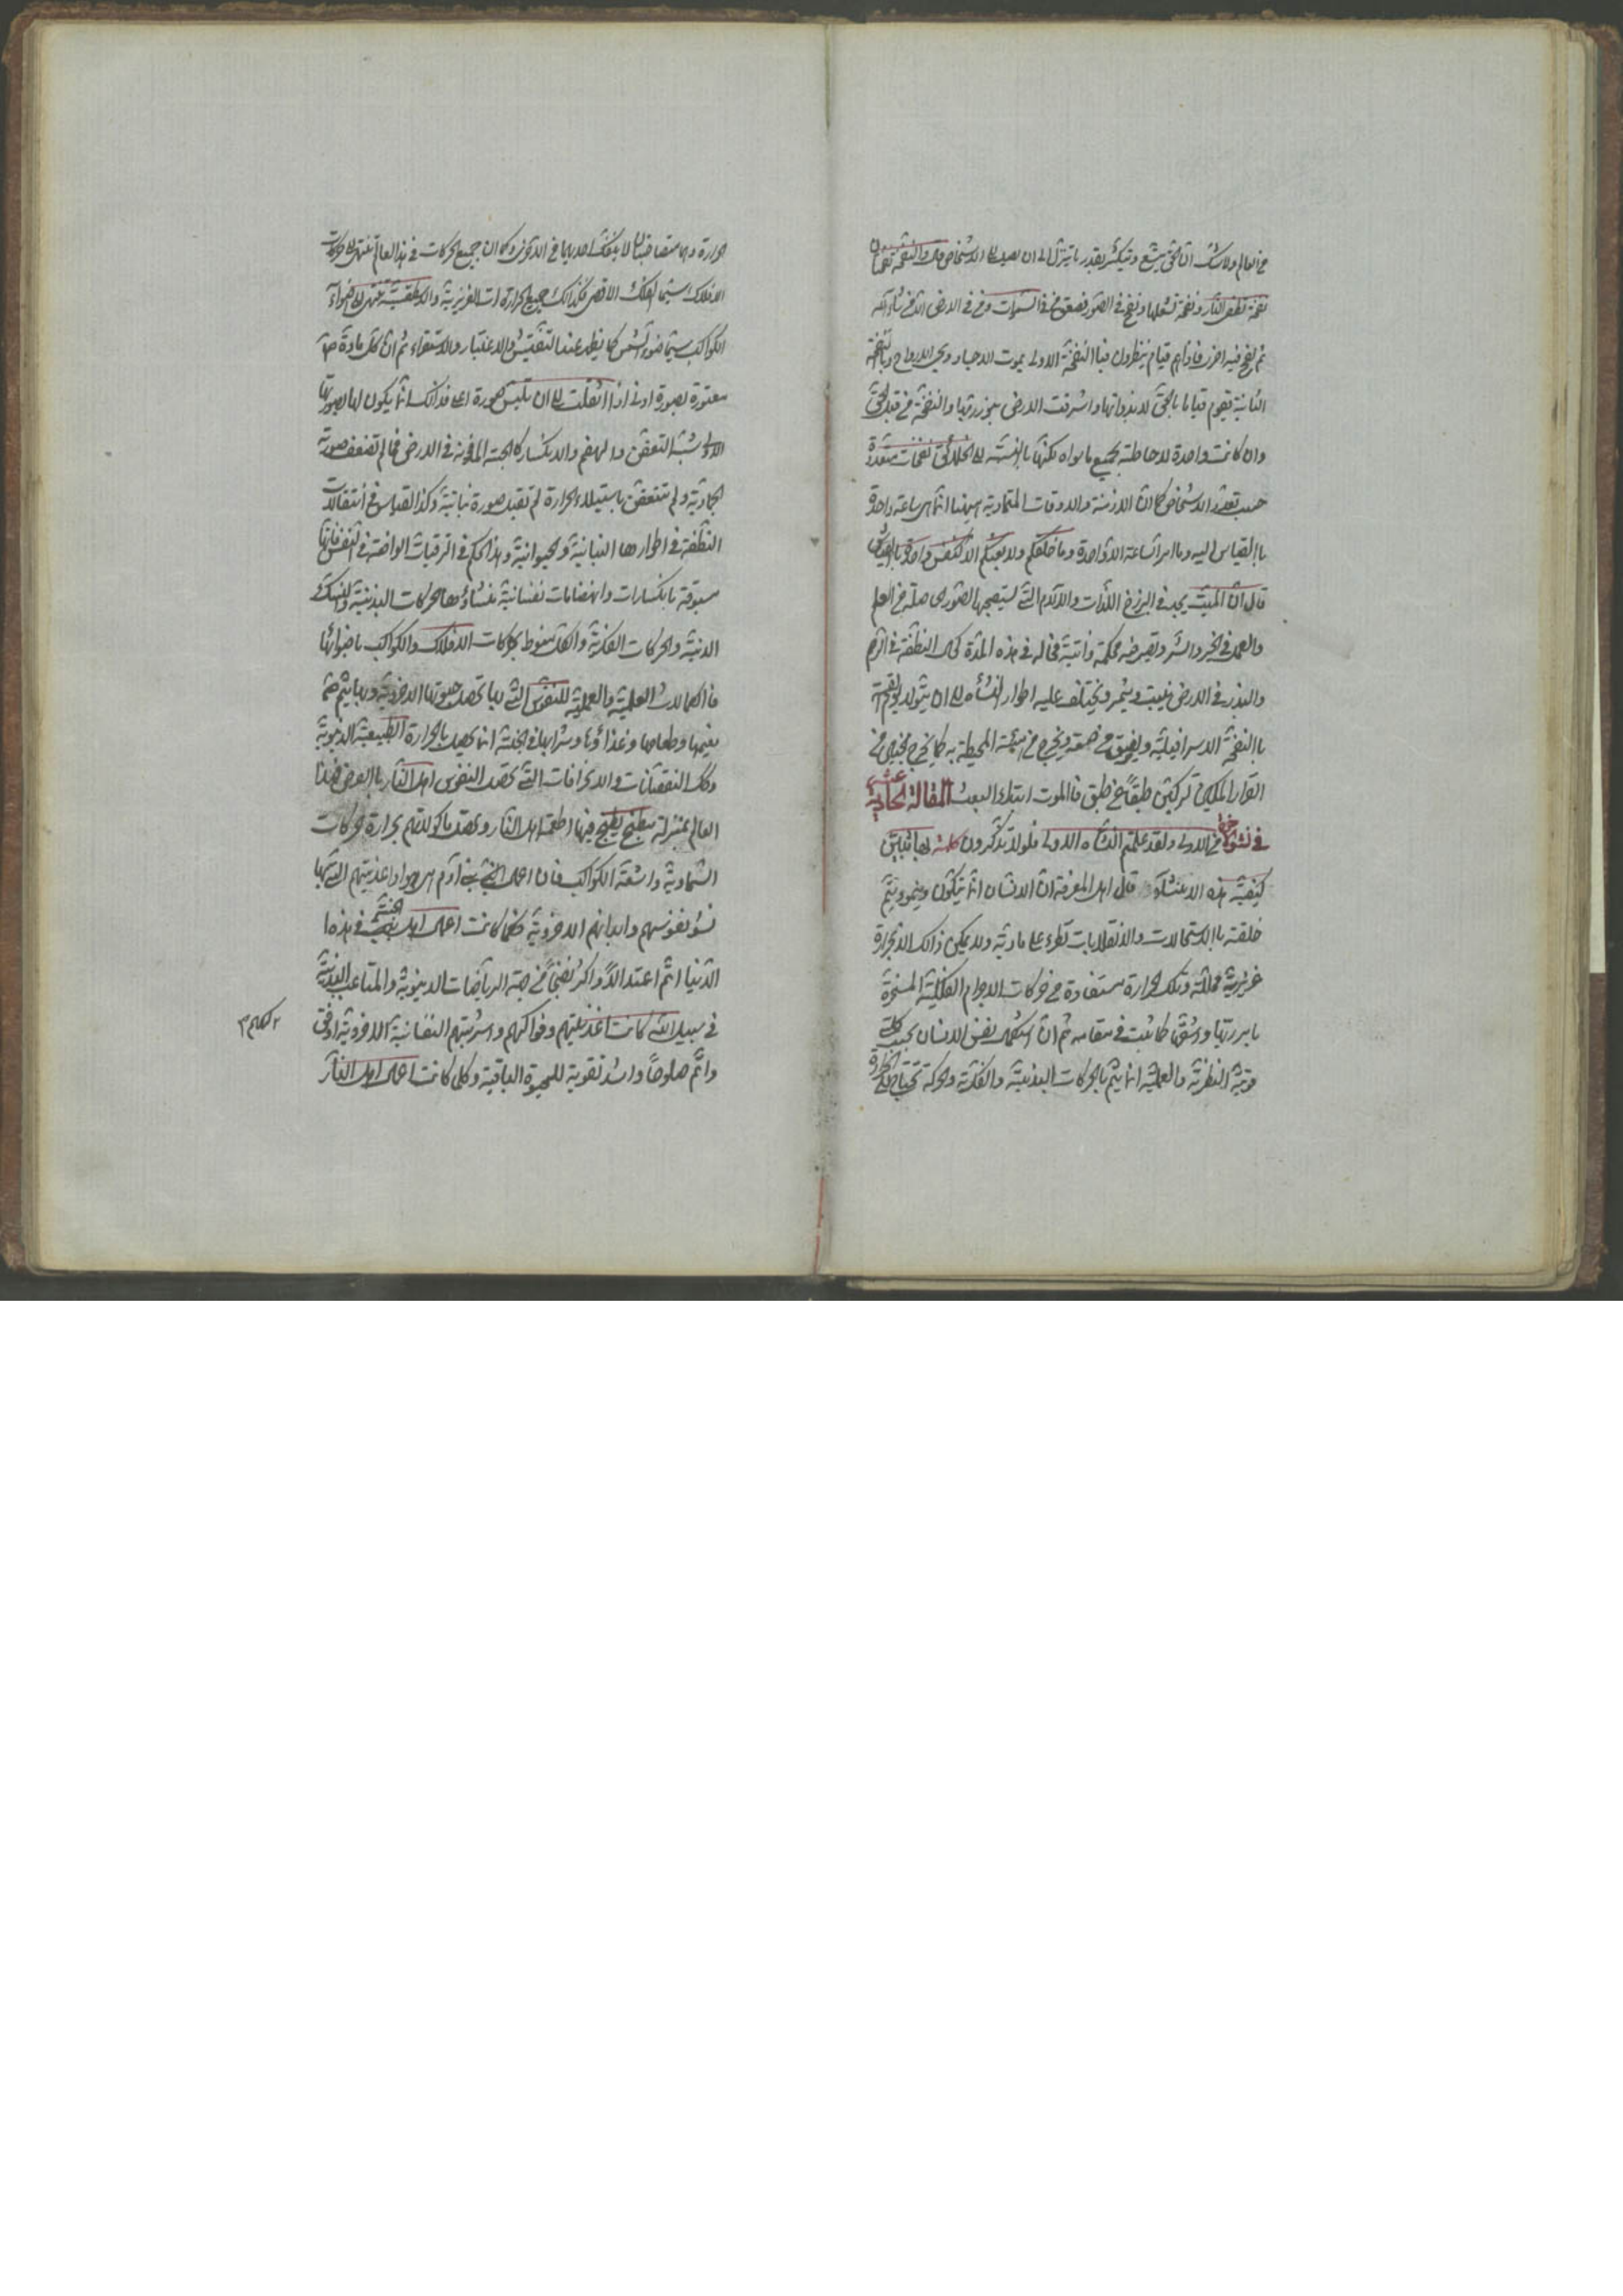 في العالم ولا شك ان الحق يتسع ويتكثر بقدر ما يتنزل الى ان يصل الى الاشخاص والنفخة نفختان
نفخة تطفئ النار ونفخة تشعلها ونفخ في الصور فصعق من في السموات ومن في الارض الا من شاء الله
ثم نفخ فيه اخرى فاذا هم قيام ينظرون فبا النفخة الاولى يموت الاجساد ويحيى الارواح وبالنفخة
الثانية يقوم قياما بالحق لا بذواتها واشرقت الارض بنور ربها والنفخة من قبل الحق
وان كانت واحدة لاحاطته بجميع ما سواه لكنها بالنسبة الى الخلائق نفخات متعددة
حسب تعدد الاشخاص كما ان الازمنة والاوقات المتمادية ههنا انما هي ساعة واحدة
باالقياس اليه وما امر الساعة الا واحدة وما خلقكم ولا بعثكم الا كنفس واحدة بالقياس
قال ان الميت يجد في البرزخ اللذات والآلام التي يستصحبها لصور حاصلة من العلم
والعمل في الخير والشر وتعرضه محكمة وثابتة فحاله في هذه المدة كحال النطفة في الرحم
والبذر في الارض ينبت ويثمر ويختلف عليه اطوار النشأه الى ان يتولد يوم القيمة
باالنفخة الاسرافيلية ويفيق من صعقه ويخرج من هيئته المحيطة به كما يخرج الجنين من
القرار المكين لتركبن طبقا عن طبق فا الموت ابتداء البعث المقالة الحادية عشر
في نشو الاخرة من الاولى ولقد علمتم النشاه الاولى فلولا تذكرون كلمة بها تبين
كيفية هذه الانشاء قال اهل المعرفة ان الانسان انما يتكون وينمو ويتم
خلقته باالاستحالات والانقلابات تطرء على مادته ولا يمكن ذلك الا بحرارة
غريزية محللة وتلك الحرارة مستفادة من حركات الاجرام الفلكية المسخرة
بامر ربها واشعتها كما ثبت في مقامه ثم ان استكمال نفس الانسان بحسب كلتى
قوتيه النظرية والعملية انما يتم بالحركات البدنية والفكرية والحركة تحتاج الى الحرارة
حرارة وهما متصاحبتان لا ينفك احديهما في الاخرى وكما ان جميع الحركات في هذا العالم تنتهى الى حركات
الافلاك سيما الفلك الاقصى فكذلك جميع الحرارات الغريزية والاسطقسية تنتهى الى اضواء
الكواكب سيما ضوء الشمس كما يظهر عند التفتيش والاعتبار والاستقراء ثم ان كل مادة
مصورة بصورة ادنى اذا انتقلت الى ان تلبس صورة اعلى فذلك انما يكون لها بصورتها
الاولى شبه التعفن والهضم والانكسار كالحبة المدفونة في الارض فما لم تضعف صورته
الجمادية ولم تتعفن باستيلاء الحرارة لم تقبل صورة نباتية وكذا القياس في انتقالات
النطفة في اطوارها النباتية والحيوانية وهذا الحكم في الترقيات الواقعة في النفس فانها
مسبوقة بانكسارات وانهضامات نفسانية منشاؤها الحركات البدنية والنسك
الدنية والحركات الفكرية والكل منوط بحركات الافلاك والكواكب باضوائها
فالكمالات العلمية والعملية للنفوس التي بها تحصل حيوتها الاخروية وبها يتم
نعيمها وطعامها وغذاؤها وشرابها في الجنة انما تحصل بالحرارة الطبيعية الدنيوية
وكذا النقصانات والانحرافات التي تحصل لنفوس اهل النار باالعرض فهذا
العالم بمنزلة مطبخ يطبخ فيها اطعمة اهل النار وتصلح ماكولاتهم بحرارة الحركات
السماوية واشعة الكواكب فان اعمال بني آدم هي مواد اغذيتهم التي بها
نشو نفوسهم وابدانهم الاخروية فكلما كانت اعمال اهل الجنة في هذا
الدنيا اتم اعتدالا واكثر نضجا من جهة الرياضات الدينوية والمتاعب البدنية
في سبيل الله كانت اغذيتهم وفواكههم واشربتهم النفسانية الاخروية اوفق
واتم صلوحا واشد تقوية للحيوة الباقية وكل كانت اعمال اهل النار